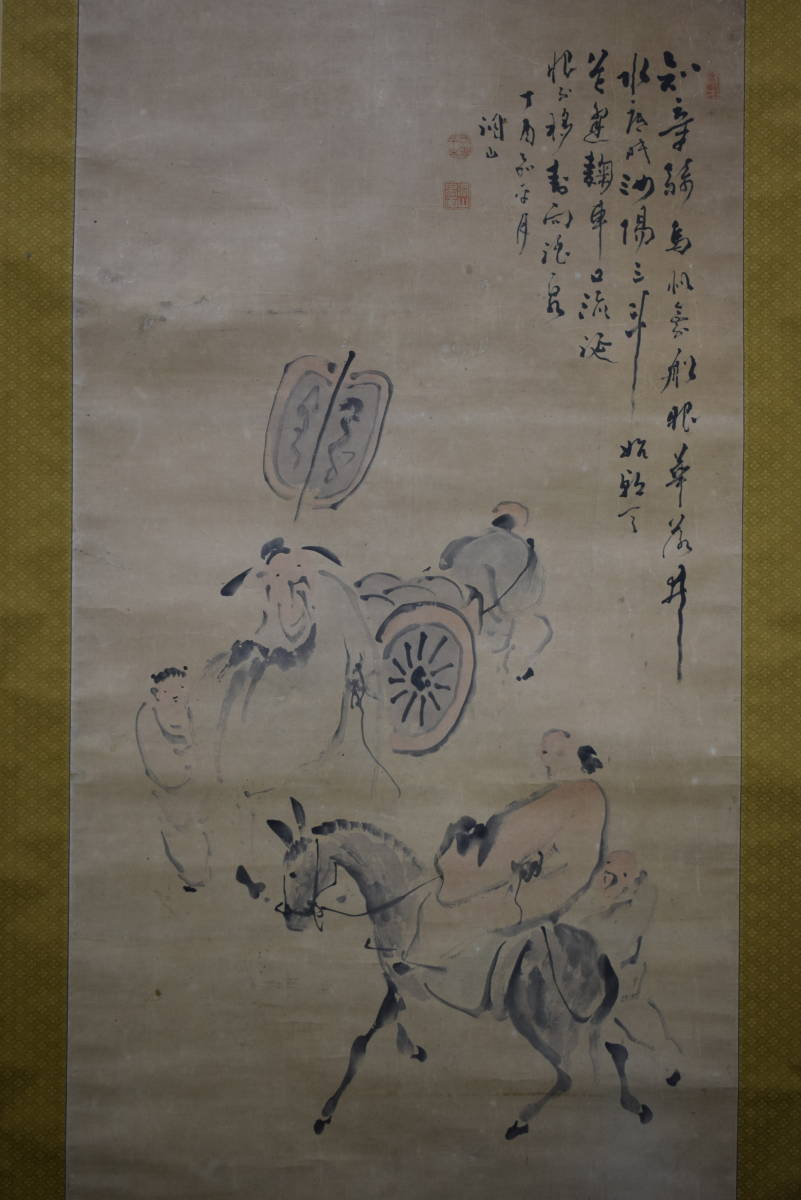 知章騎馬似乘船眼華落井
水底眠汝陽三斗始朝天
道逢麴車口流涎
恨不移封向酒泉
丁酉 月
山